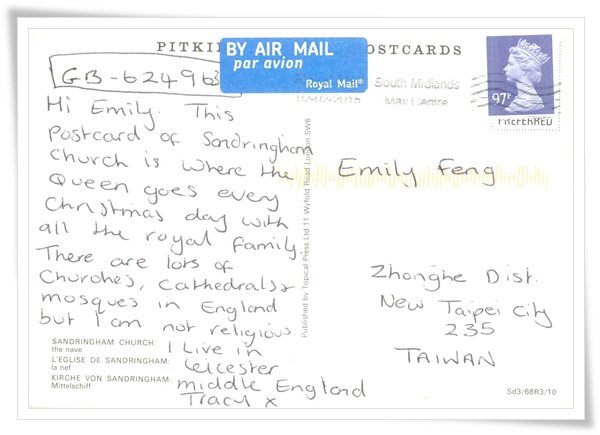 PITKI POSTCARDS
BY AIR MAIL
par avion
Royal Mail®
GB-624963
South Midlands
Mail Centre
97P
PREFERRED
Hi Emily. This
Postcard of Sandringham
Church is where the
Queen goes every
Christmas day with
all the royal family
There are lots of
Churches, Cathedrals &
mosques in England
but I am not religious
I Live in
Leicester
middle England
Tracy x
Published by Topical Press Ltd 11 Wyfold Road London SW6
Emily Feng
Zhonghe Dist.
New Taipei City
235
TAIWAN
SANDRINGHAM CHURCH:
the nave
L'EGLISE DE SANDRINGHAM:
la nef
KIRCHE VON SANDRINGHAM:
Mittelschiff
Sd3/68R3/10